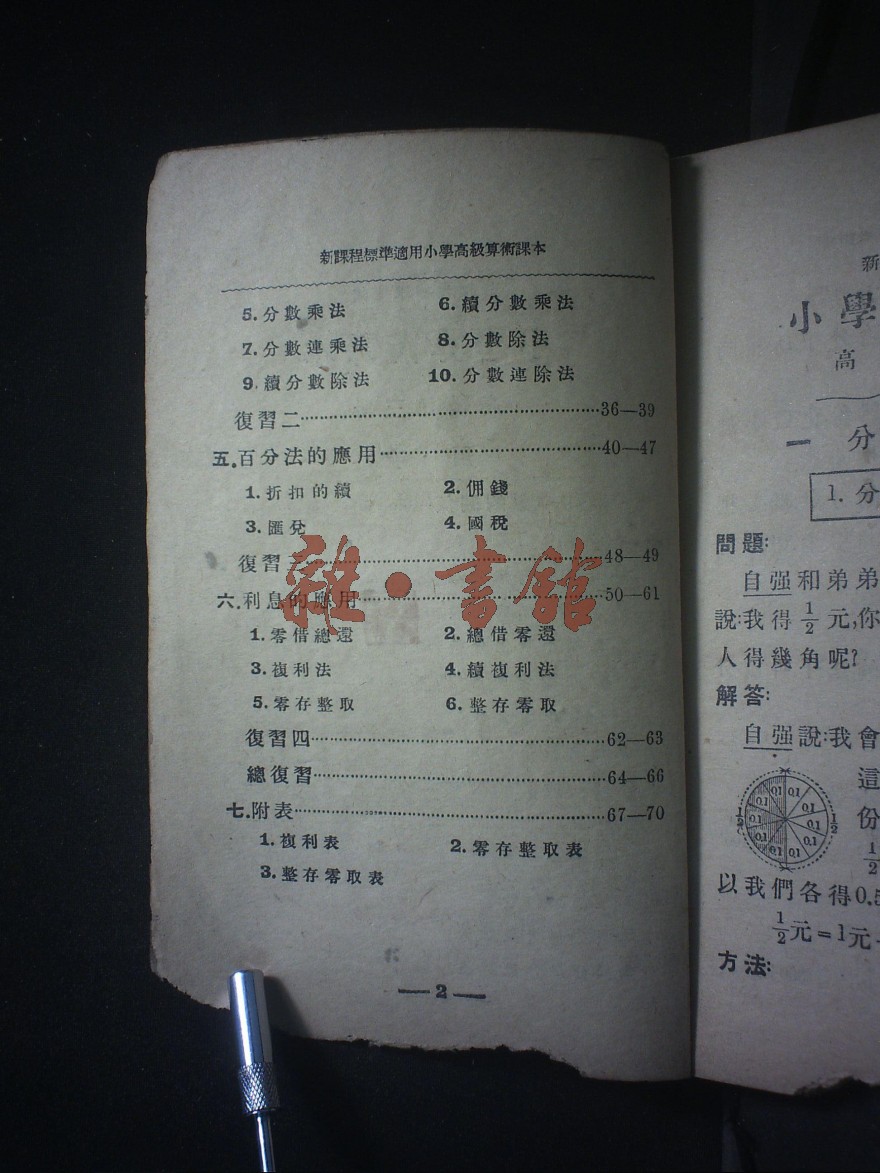 新課程標準適用小學高級算術課本
5. 分數乘法 6. 續分數乘法
7. 分數連乘法 8. 分數除法
9. 續分數除法 10. 分數連除法
復習二……36—39
五. 百分法的應用……40—47
1. 折扣的續 2. 佣錢
3. 匯兌 4. 國稅
復習三……48—49
六. 利息的應用……50—61
1. 零借總還 2. 總借零還
3. 複利法 4. 續複利法
5. 零存整取 6. 整存零取
復習四……62—63
總復習……64—66
七. 附表……67—70
1. 複利表 2. 零存整取表
3. 整存零取表
—2—
雜·書館
新
小學
高
一 分
1. 分
問題:
自强和弟弟
說:我得1/2元,你
人得幾角呢?
解答:
自强說:我會
這
份
1/2 0.1 0.1 0.1 0.1 0.1 0.1 0.1 0.1 0.1 0.1 1/2
1/2
以我們各得0.5
1/2元=1元
方法: